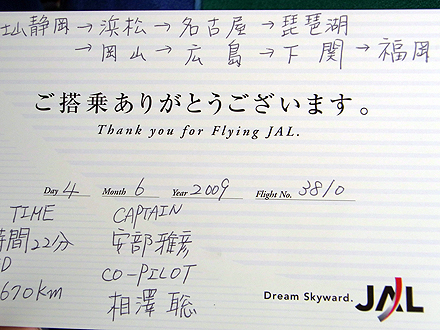 士山静岡→浜松→名古屋→琵琶湖
→岡山→広島→下関→福岡
ご搭乗ありがとうございます。
Thank you for Flying JAL.
Day 4 Month 6 Year 2009 Flight No. 3810
TIME CAPTAIN
時間22分 安部雅彦
D CO-PILOT
670km 相澤聡
Dream Skyward. JAL